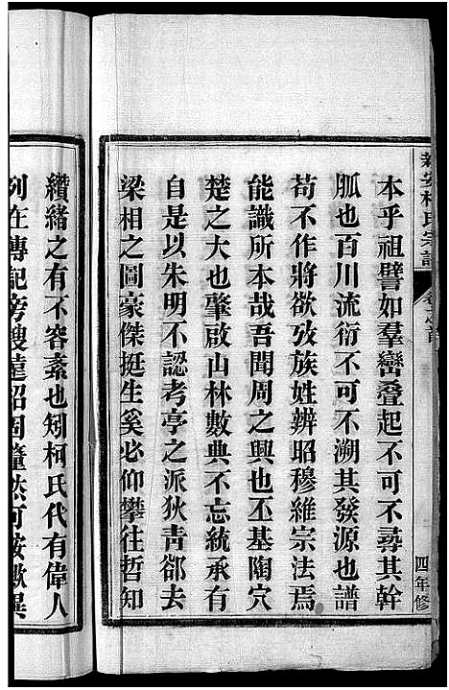 本乎祖譬如羣巒疊起不可不尋其幹
脈也百川流衍不可不溯其發源也譜
苟不作將欲攷族姓辨昭穆維宗法焉
能識所本哉吾聞周之興也丕基陶穴
楚之大也肇啟山林數典不忘統承有
自是以朱明不認考亭之派狄青郤去
梁相之圖豪傑挺生奚必仰攀往哲知
纘緒之有不容紊也矧柯氏代有偉人
列在傳記旁
柯氏宗譜
四年修